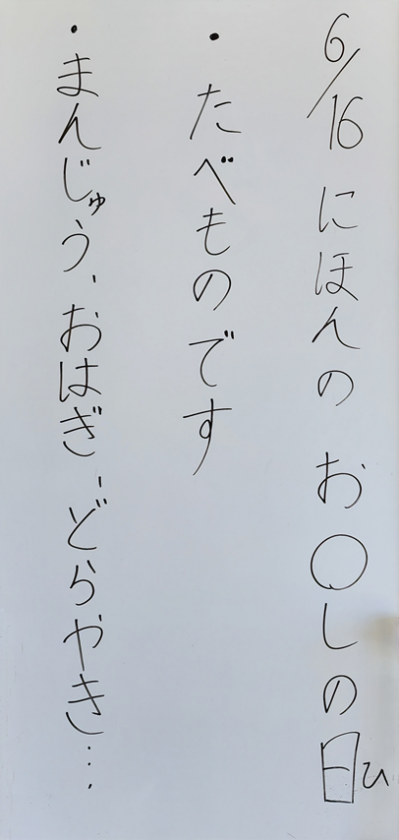 6/16 にほんの お〇しの日ひ
・たべものです
・まんじゅう、おはぎ、どらやき…